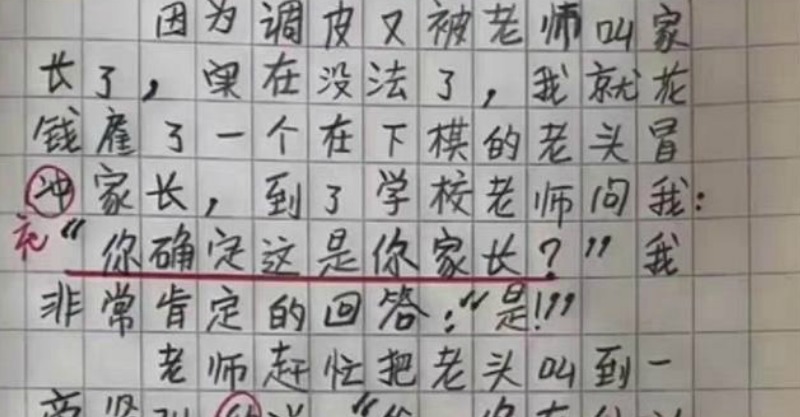 因为调皮又被老师叫家
长了，实在没法了，我就花
钱雇了一个在下棋的老头冒
冲家长，到了学校老师问我：
充
“你确定这是你家长？”我
非常肯定的回答：“是！”
老师赶忙把老头叫到一